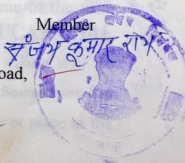 Member
संजय कुमार राय
oad,